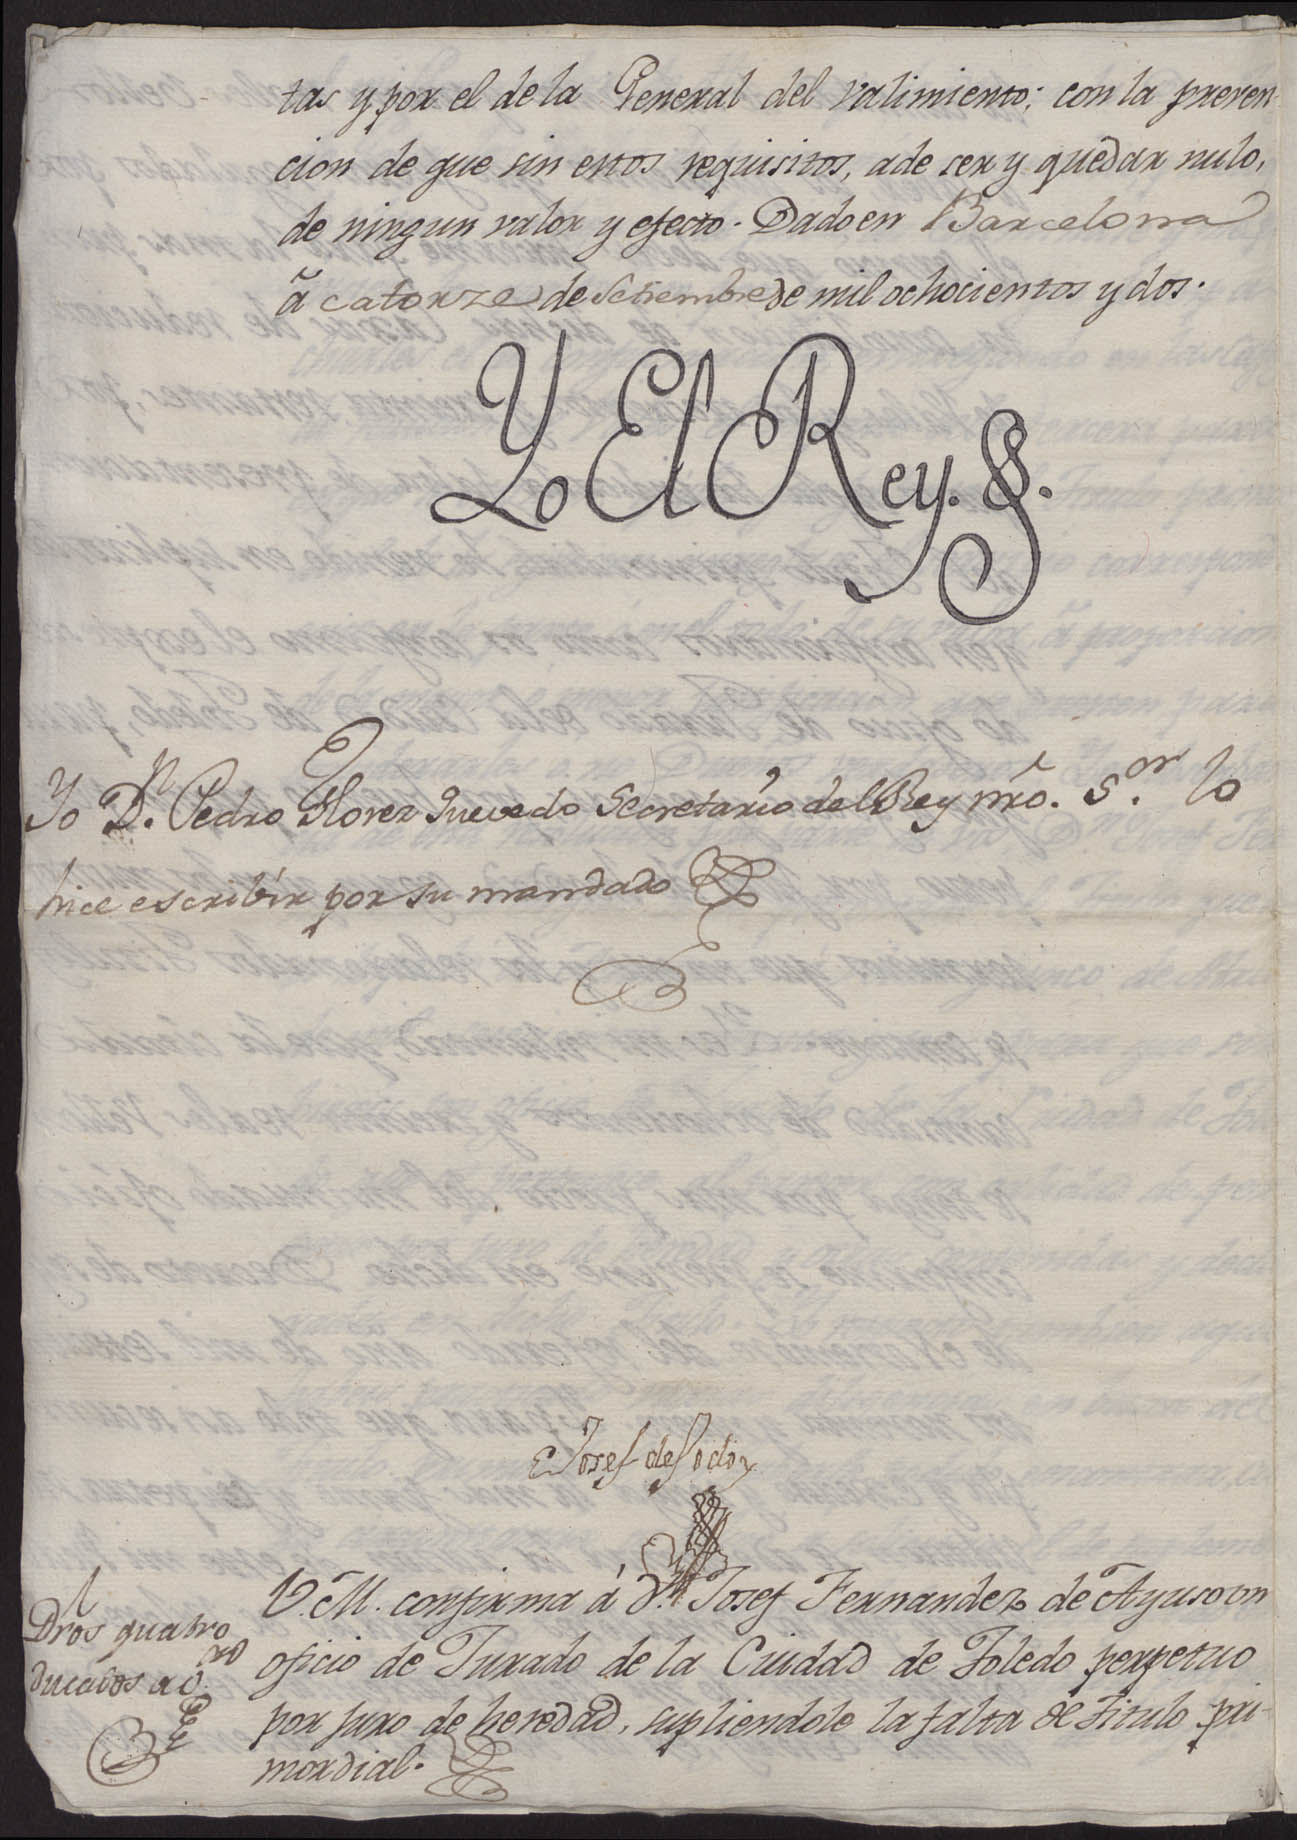 tas y por el de la General del Valimiento; con la preven-
cion de que sin estos requisitos, a de ser y quedar nulo,
de ningun valor y efecto. Dado en Barcelona
â catorze de Setiembre de mil ochocientos y dos.
Yo El Rey. §.
Yo Dn. Pedro Florez Quevedo Secretario del Rey nro. Sor. lo
hice escribir por su mandado
Josef de Godoy
V.M. confirma á Dn. Josef Fernandez de Ayuso un
oficio de Jurado de la Ciudad de Toledo perpetuo
por juro de heredad, supliendole la falta de titulo pri-
mordial.
Dros quatro
ducados